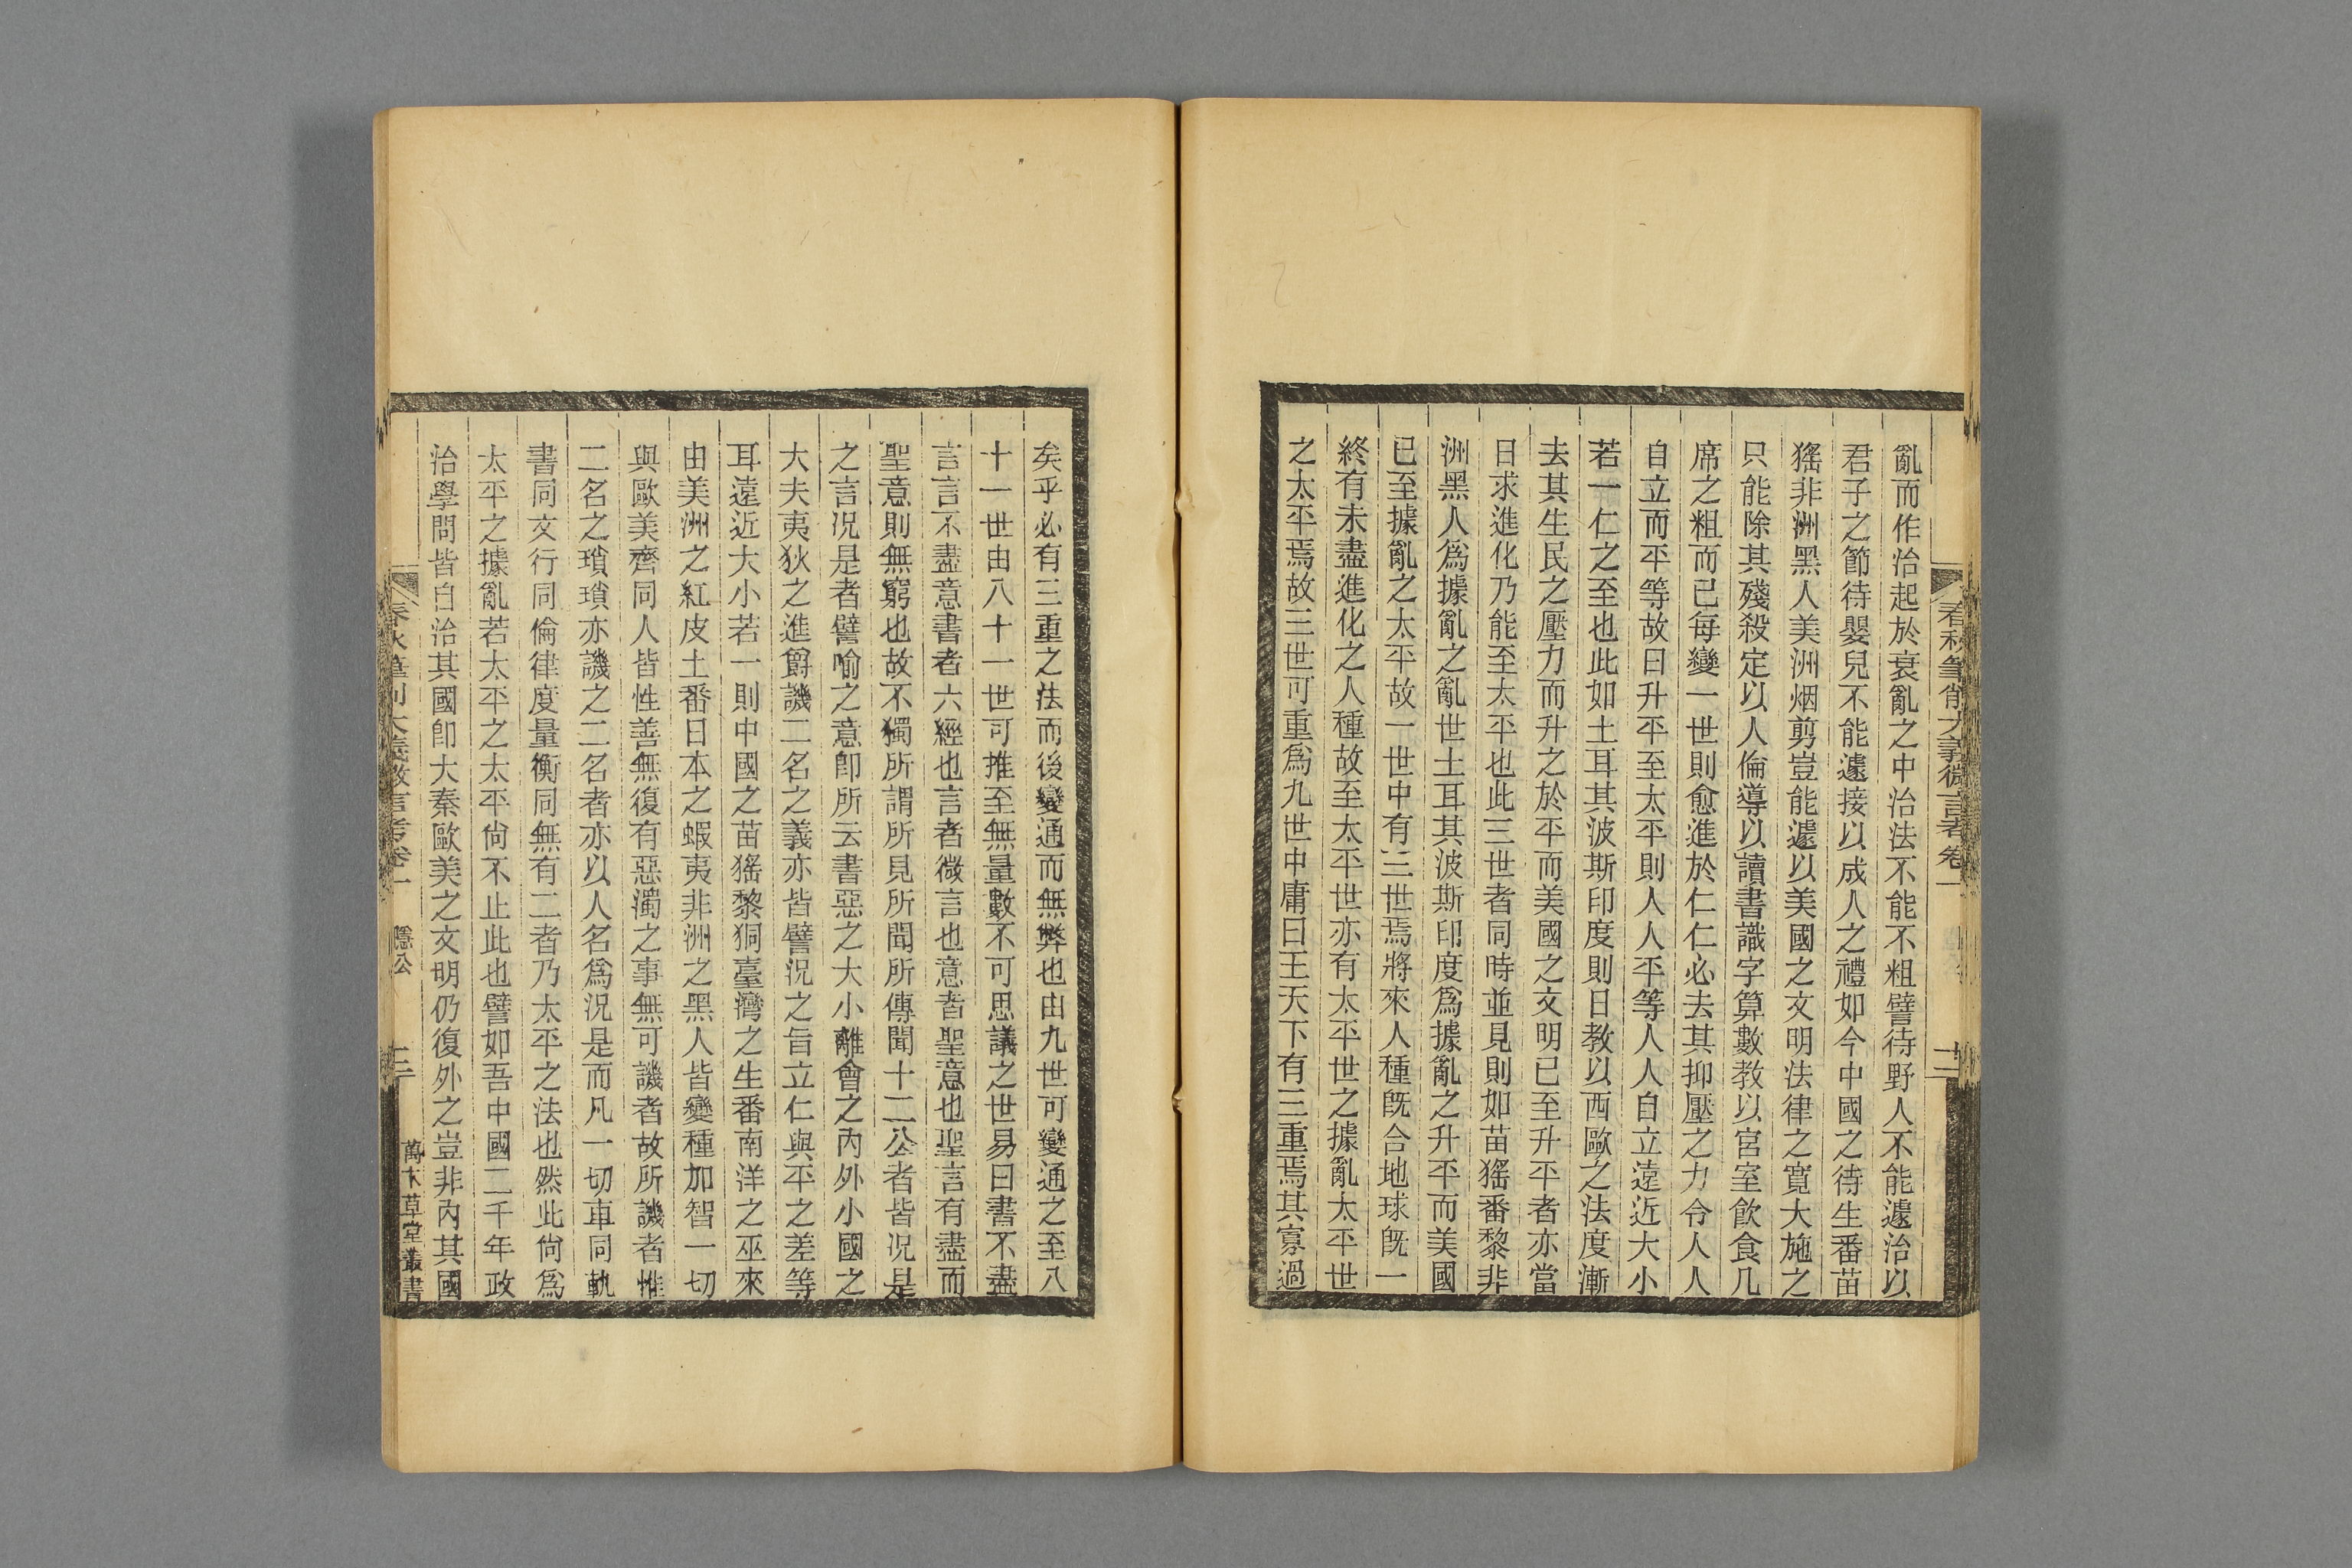 春秋筆削大義微言考卷一
亂而作治起於衰亂之中治法不能不粗譬待野人不能遽治以
君子之節待嬰兒不能遽接以成人之禮如今中國之待生番苗
猺非洲黑人美洲烟剪豈能遽以美國之文明法律之寬大施之
只能除其殘殺定以人倫導以讀書識字算數教以宮室飲食几
席之粗而已每變一世則愈進於仁仁必去其抑壓之力令人人
自立而平等故曰升平至太平則人人平等人人自立遠近大小
若一仁之至也此如土耳其波斯印度則日教以西歐之法度漸
去其生民之壓力而升之於平而美國之文明已至升平者亦當
日求進化乃能至太平也此三世者同時並見則如苗猺番黎非
洲黑人爲據亂之亂世土耳其波斯印度爲據亂之升平而美國
已至據亂之太平故一世中有三世焉將來人種旣合地球旣一
終有未盡進化之人種故至太平世亦有太平世之據亂太平世
之太平焉故三世可重爲九世中庸曰王天下有三重焉其寡過
矣乎必有三重之法而後變通而無弊也由九世可變通之至八
十一世由八十一世可推至無量數不可思議之世易曰書不盡
言言不盡意書者六經也言者微言也意者聖意也聖言有盡而
聖意則無窮也故不獨所謂所見所聞所傳聞十二公者皆況是
之言況是者譬喻之意卽所云書惡之大小離會之內外小國之
大夫夷狄之進爵譏二名之義亦皆譬況之旨立仁與平之差等
耳遠近大小若一則中國之苗猺黎狪臺灣之生番南洋之巫來
由美洲之紅皮土番日本之蝦夷非洲之黑人皆變種加智一切
與歐美齊同人皆性善無復有惡濁之事無可譏者故所譏者惟
二名之瑣瑣亦譏之二名者亦以人名爲況是而凡一切車同軌
書同文行同倫律度量衡同無有二者乃太平之法也然此尙爲
太平之據亂若太平之太平尙不止此也譬如吾中國二千年政
治學問皆自治其國卽大秦歐美之文明仍復外之豈非內其國
春秋筆削大義微言考卷一 隱公 三 萬木草堂叢書